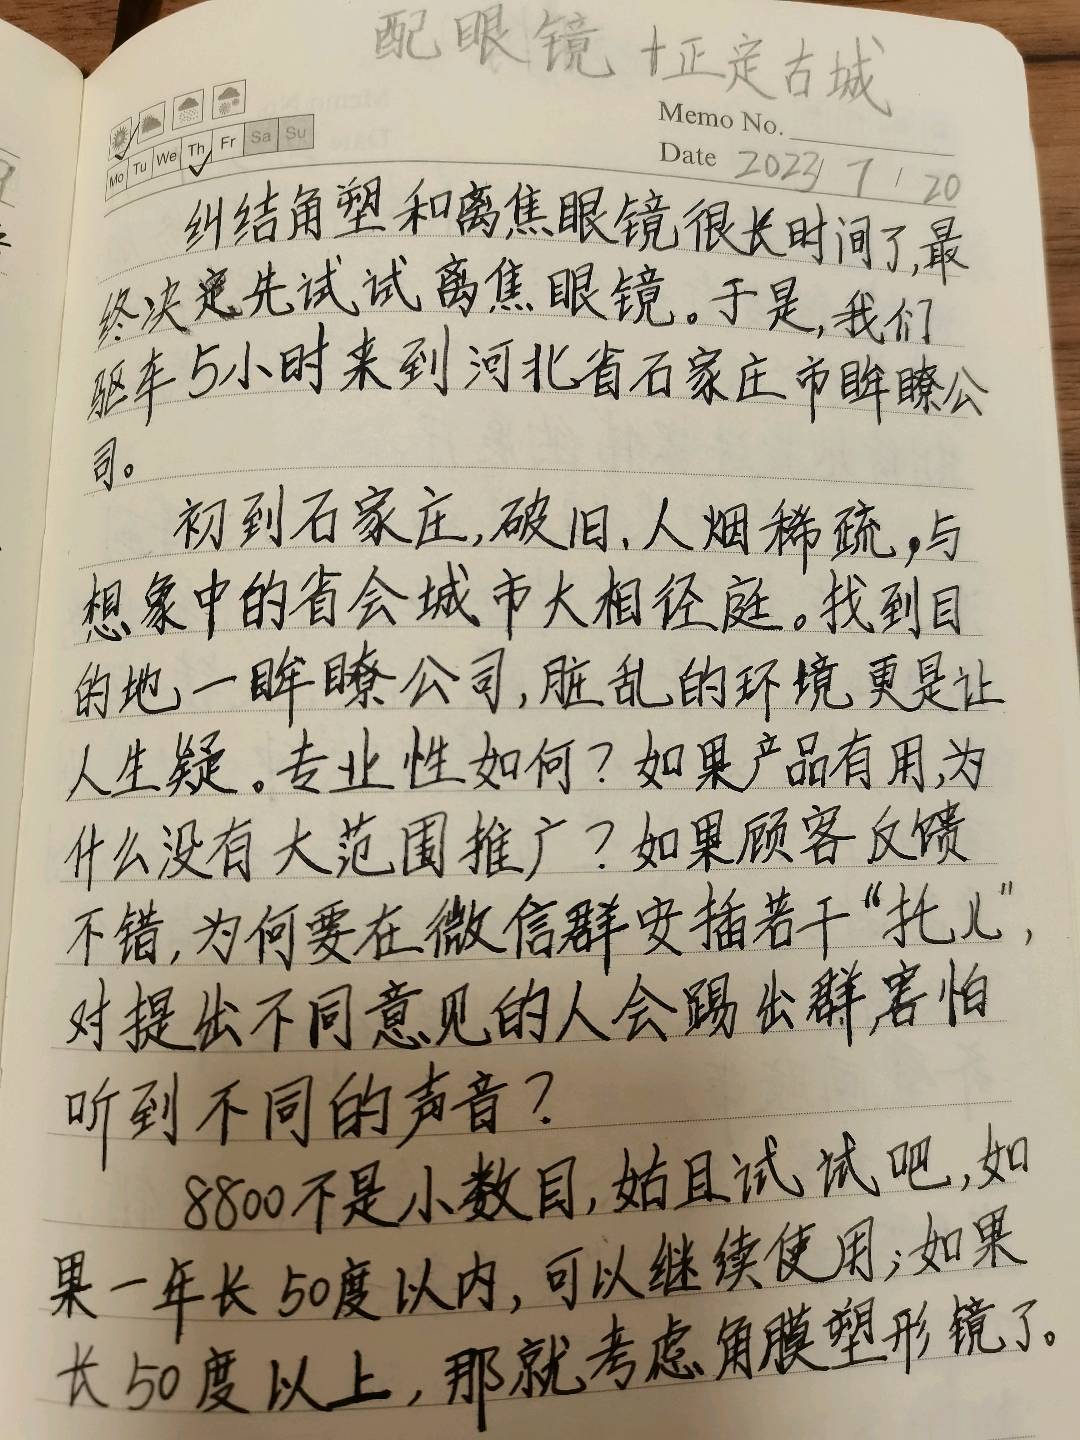 配眼镜+正定古城
Memo No.
Mo Tu We Th Fr Sa Su
Date 2023/7/20
纠结角塑和离焦眼镜很长时间了,最
终决定先试试离焦眼镜。于是,我们
驱车5小时来到河北省石家庄市眸瞭公
司。
初到石家庄,破旧、人烟稀疏,与
想象中的省会城市大相径庭。找到目
的地一眸瞭公司,脏乱的环境更是让
人生疑。专业性如何?如果产品有用,为
什么没有大范围推广?如果顾客反馈
不错,为何要在微信群安插若干“托儿”,
对提出不同意见的人会踢出群,害怕
听到不同的声音?
8800不是小数目,姑且试试吧,如
果一年长50度以内,可以继续使用;如果
长50度以上,那就考虑角膜塑形镜了。